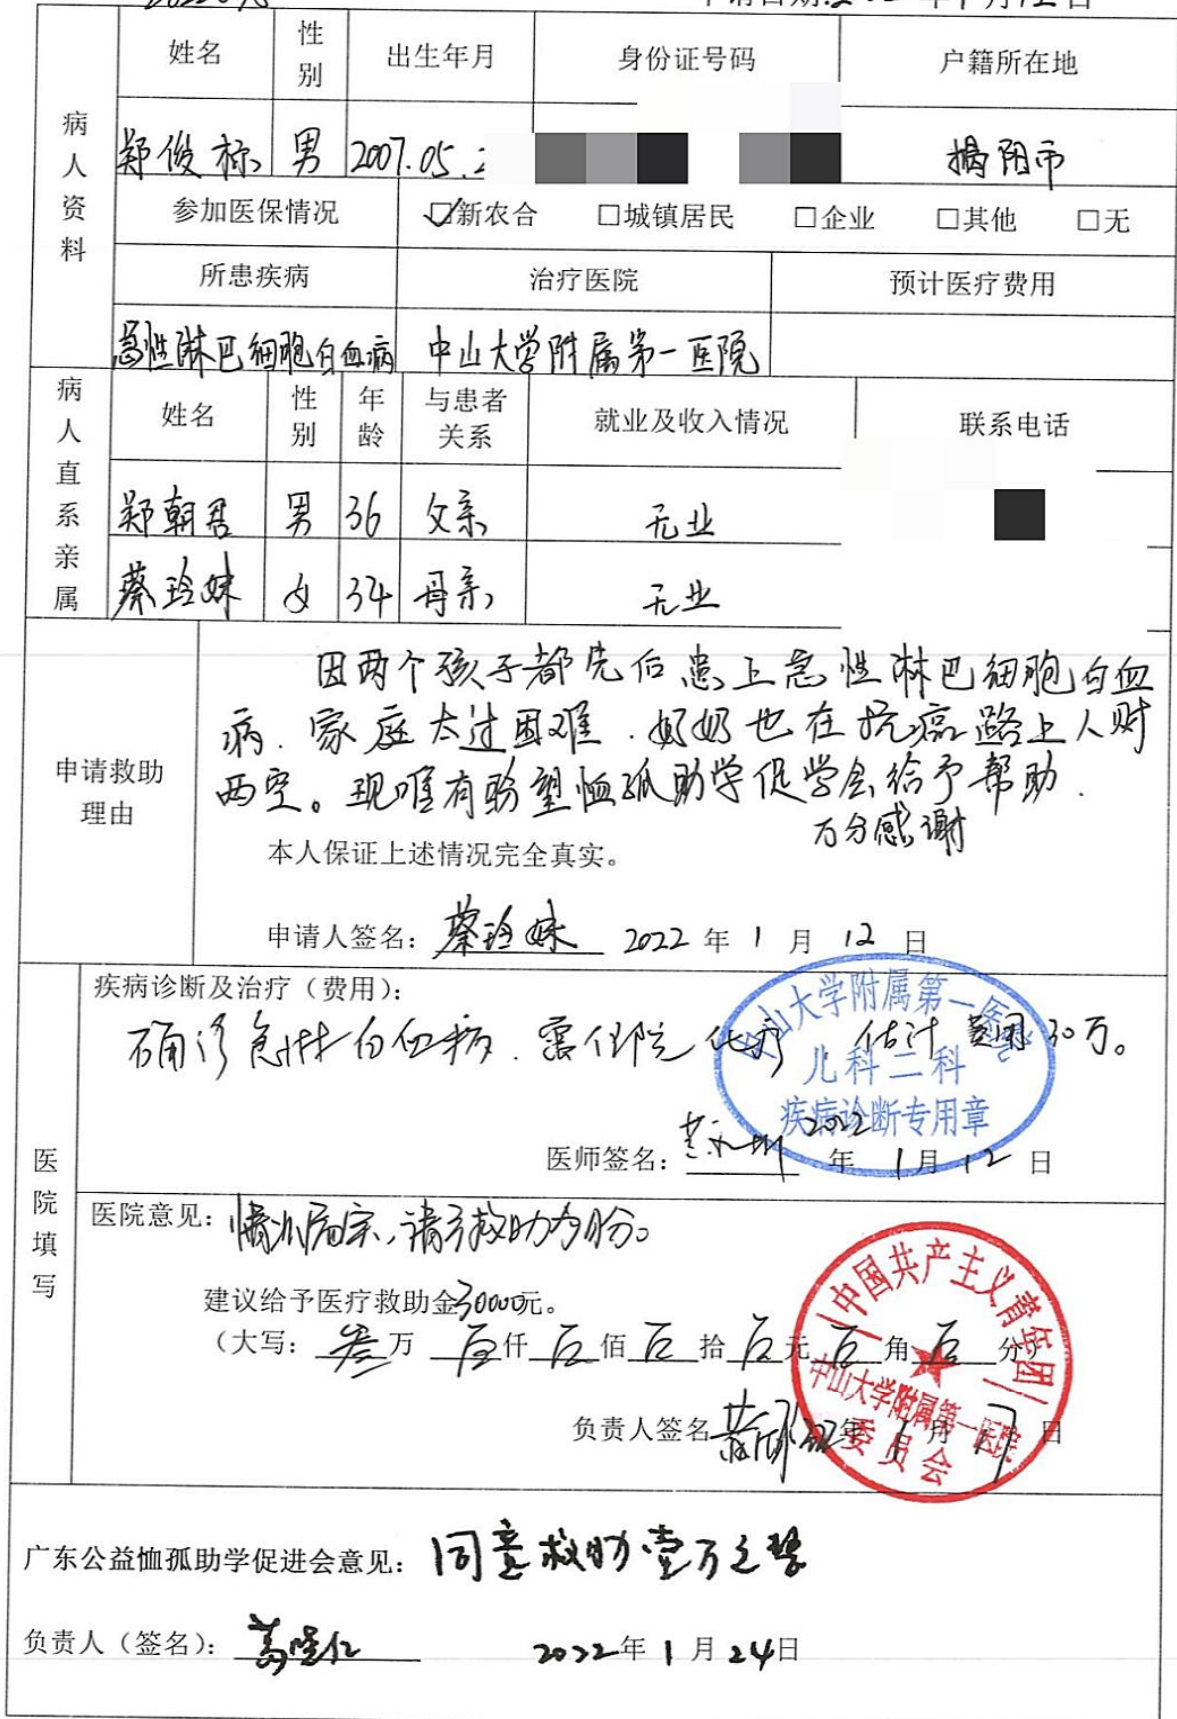 姓名 性别 出生年月 身份证号码 户籍所在地
病人资料
郑俊标 男 2007.05.2 揭阳市
参加医保情况 ☑新农合 □城镇居民 □企业 □其他 □无
所患疾病 治疗医院 预计医疗费用
急性淋巴细胞白血病 中山大学附属第一医院
病人直系亲属
姓名 性别 年龄 与患者关系 就业及收入情况 联系电话
郑朝君 男 36 父亲 无业
蔡玲妹 女 34 母亲 无业
申请救助理由
因两个孩子都先后患上急性淋巴细胞白血
病.家庭太过困难.奶奶也在抗癌路上人财
两空。现唯有盼望恤孤助学促学会给予帮助.
万分感谢
本人保证上述情况完全真实。
申请人签名：蔡玲妹 2022年1月12日
医院填写
疾病诊断及治疗（费用）：
确诊急淋白血病.需住院化疗 估计费用30万。
中山大学附属第一医院
儿科二科
疾病诊断专用章
医师签名： 2022年1月12日
医院意见：情况属实,请予救助为盼。
建议给予医疗救助金30000元。
（大写：叁万 零仟零佰零拾零元零角零分）
中国共产主义青年团
中山大学附属第一医院
委员会
负责人签名 年1月 日
广东公益恤孤助学促进会意见：同意救助壹万元整
负责人（签名）： 2022年1月24日